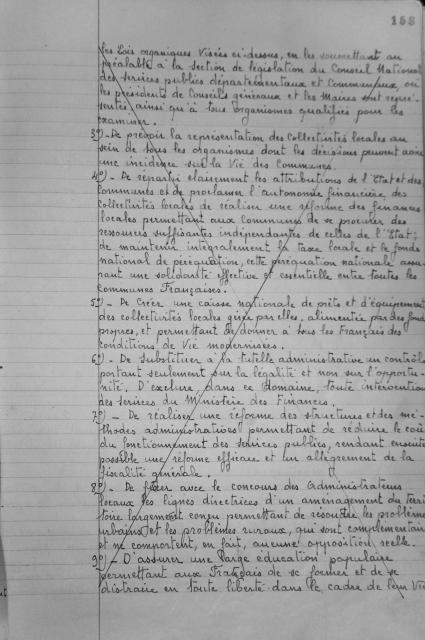 158
les Lois organiques Visées ci-dessus, en les soumettant au
préalable à la section de législation du Conseil National
des services publics départementaux et Communaux, où
les présidents de Conseils généraux et les Maires sont repré-
sentés ainsi qu'à tous organismes qualifiés pour les
examiner.
3º) - De prévoir la représentation des Collectivités locales au
sein de tous les organismes dont les décisions peuvent avoir
une incidence sur la Vie des Communes.
4º) - De répartir clairement les attributions de l'Etat et des
Communes et de proclamer l'autonomie financière des
Collectivités locales de réaliser une réforme des finances
locales permettant aux Communes de se procurer des
ressources suffisantes indépendantes de celles de l'Etat;
de maintenir intégralement la taxe locale et le fonds
national de péréquation, cette péréquation nationale assu-
rant une solidarité effective et essentielle entre toutes les
Communes Françaises.
5º) - De Créer une caisse nationale de prêts et d'équipement
des collectivités locales gérée par elles, alimentée par des fonds
propres, et permettant de donner à tous les Français des
conditions de Vie modernisées.
6º) - De substituer à la tutelle administrative un contrôle
portant seulement sur la légalité et non sur l'opportu-
nité, D'exclure, dans ce Domaine, toute intervention
des services du Ministère des Finances.
7º) - De réaliser une réforme des structures et des mé-
thodes administratives permettant de réduire le coût
du fonctionnement des services publics, rendant ensuite
possible une réforme efficace et un allègrement de la
fiscalité générale.
8º) - De fixer avec le concours des Administrateurs
locaux les lignes directrices d'un aménagement du terri
toire largement conçu permettant de résoudre les problèmes
urbains et les problèmes ruraux, qui sont complémentaires
et ne comportent, en fait, aucune opposition réelle.
9º) - D'assurer une large éducation populaire
permettant aux Français de se former et de se
distraire en toute liberté dans le cadre de leur Vie